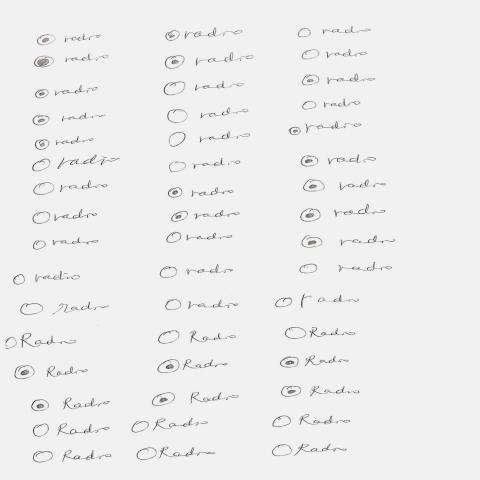 radio radio radio
radio radio radio
radio radio radio
radio radio radio
radio radio radio
radio radio radio
radio radio radio
radio radio radio
radio radio radio
radio radio radio
radio radio radio
Radio Radio Radio
Radio Radio Radio
Radio Radio Radio
Radio Radio Radio
Radio Radio Radio